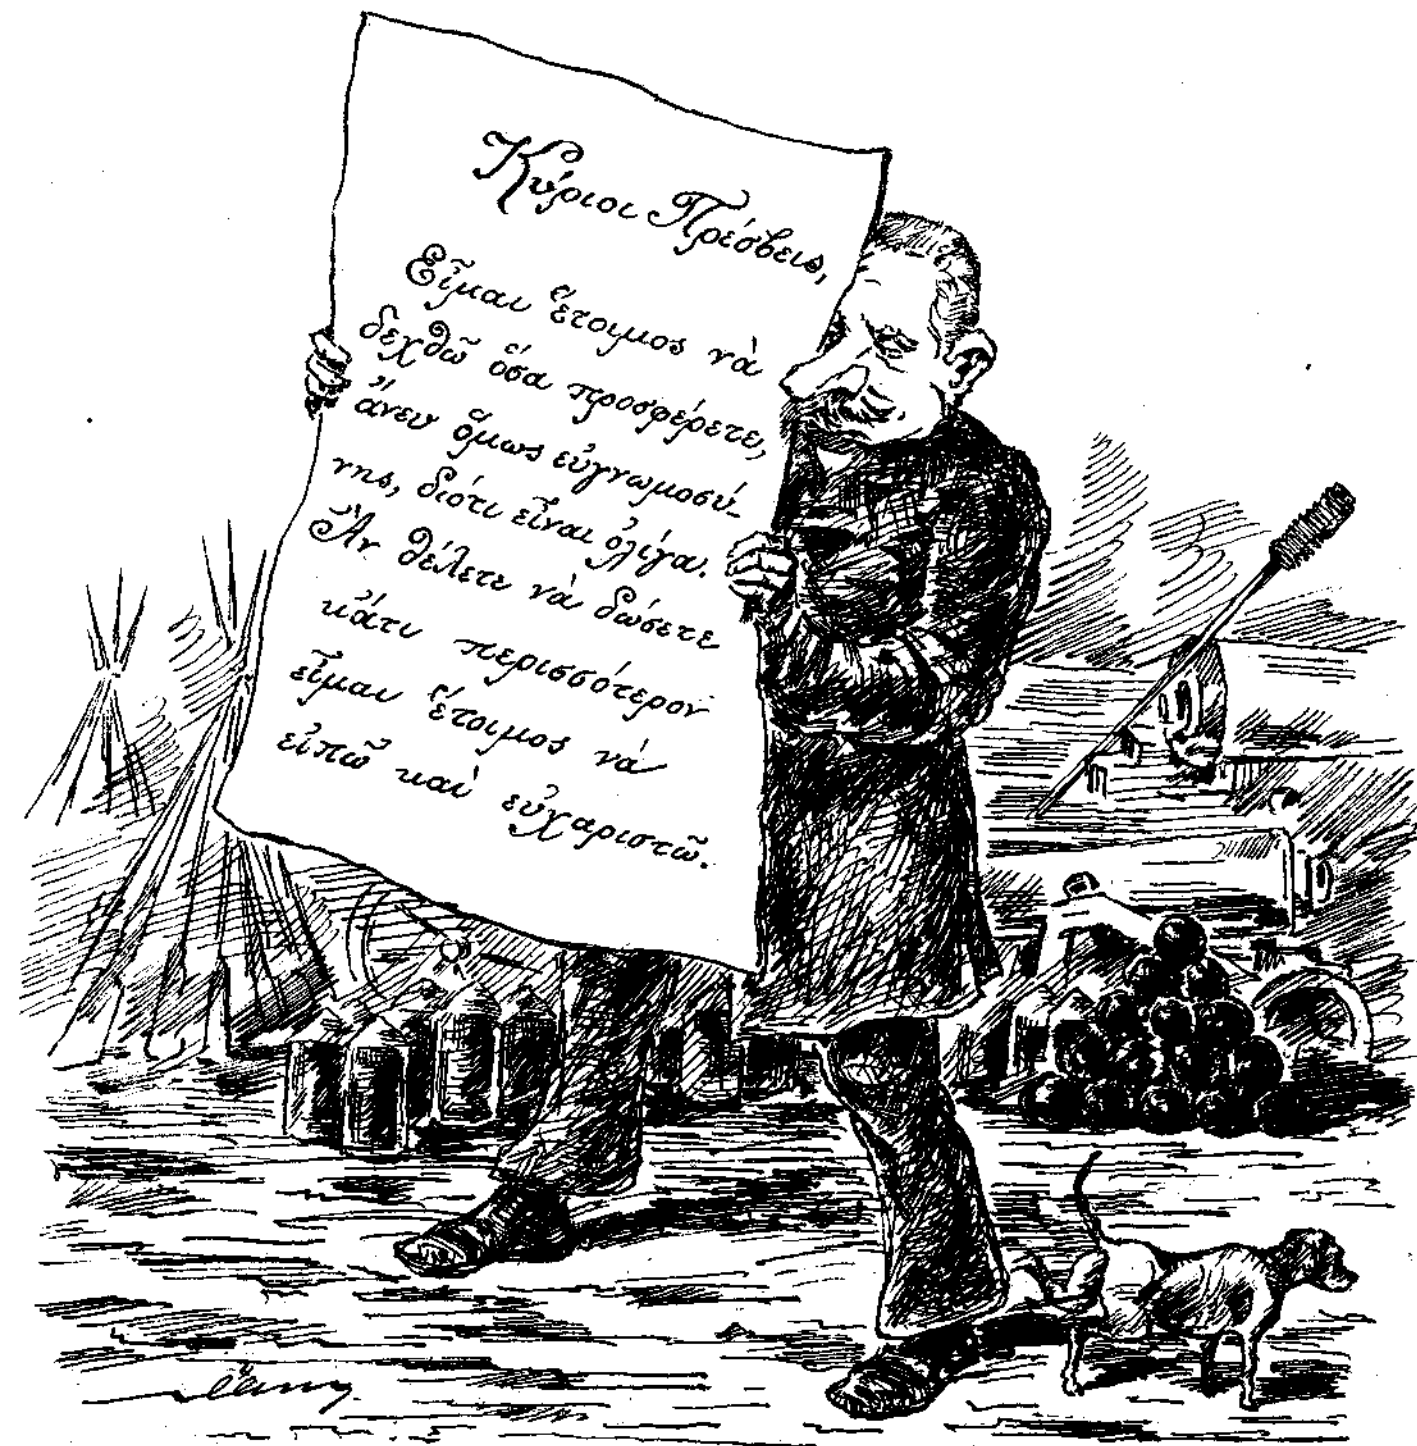 Κύριοι Πρέσβεις,
Εἶμαι ἕτοιμος νὰ
δεχθῶ ὅσα προσφέρετε,
ἄνευ ὅμως εὐγνωμοσύ-
νης, διότι εἶναι ὀλίγα.
Ἂν θέλετε νὰ δώσετε
κἄτι περισσότερον
εἶμαι ἕτοιμος νὰ
εἰπῶ καὶ εὐχαριστῶ.